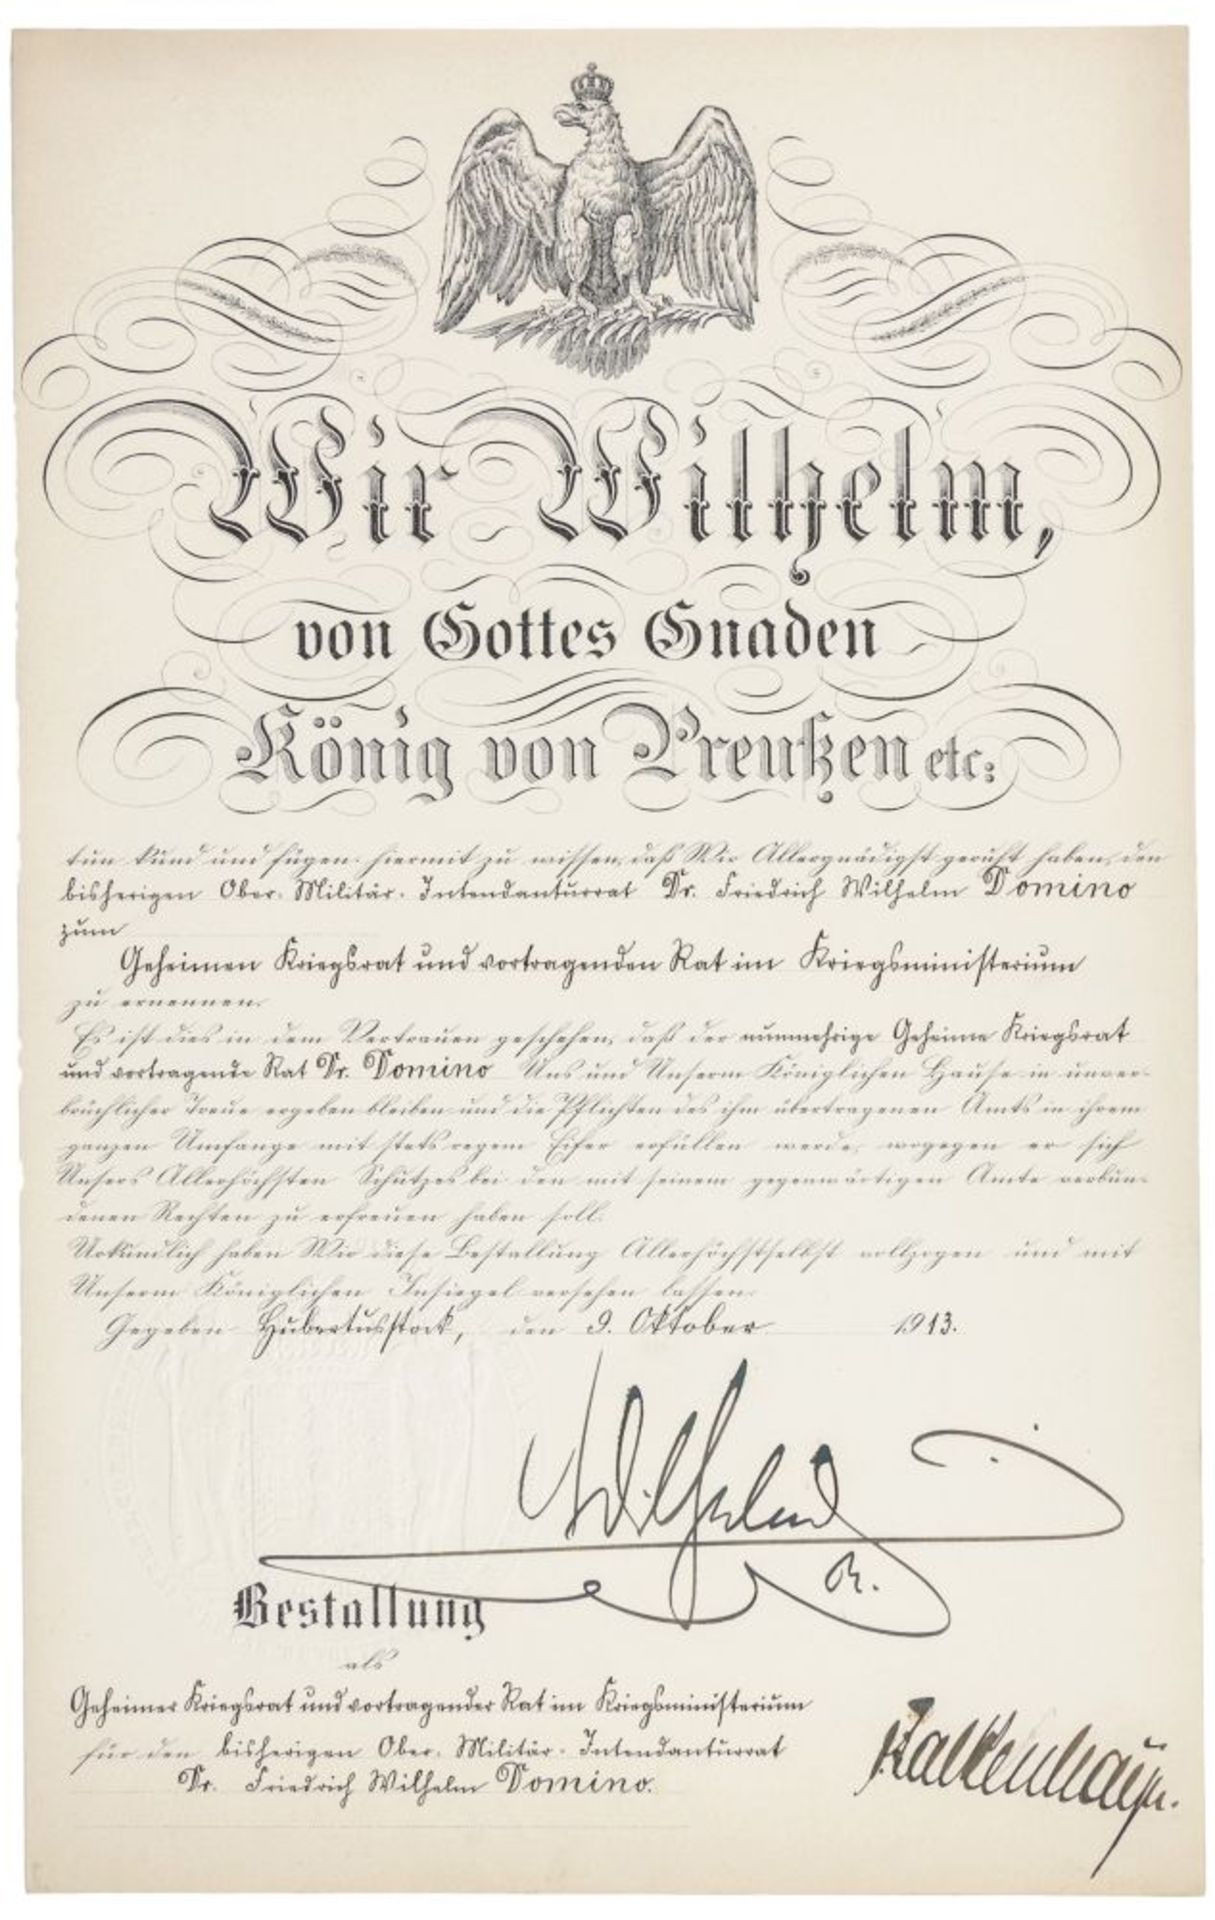 Wir Wilhelm,
von Gottes Gnaden
König von Preußen etc:
tun kund und fügen hiermit zu wissen, daß Wir Allergnädigst geruht haben, den
bisherigen Ober-Militär-Intendanturrat Dr. Friedrich Wilhelm Domino
zum
Geheimen Kriegsrat und vortragenden Rat im Kriegsministerium
zu ernennen.
Es ist dies in dem Vertrauen geschehen, daß der nunmehrige Geheime Kriegsrat
und vortragende Rat Dr. Domino Uns und Unserm Königlichen Hause in unver-
brüchlicher Treue ergeben bleiben und die Pflichten des ihm übertragenen Amts in ihrem
ganzen Umfange mit stets regem Eifer erfüllen werde, wogegen er sich
Unsers Allerhöchsten Schutzes bei den mit seinem gegenwärtigen Amte verbun-
denen Rechten zu erfreuen haben soll.
Urkundlich haben Wir diese Bestallung Allerhöchstselbst vollzogen und mit
Unserm Königlichen Insiegel versehen lassen.
Gegeben Hubertusstock, den 9. Oktober 1913.
Wilhelm
R.
Bestallung
als
Geheimer Kriegsrat und vortragender Rat im Kriegsministerium
für den bisherigen Ober-Militär-Intendanturrat
Dr. Friedrich Wilhelm Domino.
Falkenhayn.